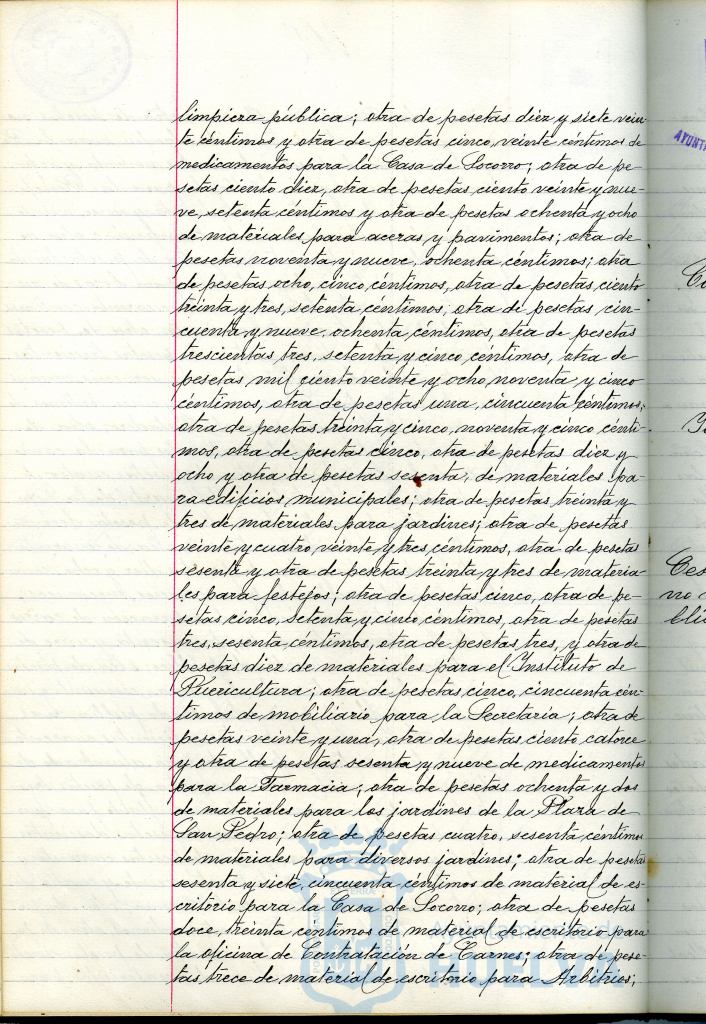 limpieza pública; otra de pesetas diez y siete vein-
te céntimos y otra de pesetas cinco, veinte céntimos de
medicamentos para la Casa de Socorro; otra de pe-
setas ciento diez, otra de pesetas ciento veinte y nue-
ve, setenta céntimos y otra de pesetas ochenta y ocho
de materiales para aceras y pavimentos; otra de
pesetas noventa y nueve, ochenta céntimos; otra
de pesetas ocho, cinco céntimos, otra de pesetas, ciento
treinta y tres, setenta céntimos, otra de pesetas cin-
cuenta y nueve, ochenta céntimos, otra de pesetas
trescientas tres, setenta y cinco céntimos, otra de
pesetas mil ciento veinte y ocho noventa y cinco
céntimos, otra de pesetas una, cincuenta céntimos,
otra de pesetas treinta y cinco, noventa y cinco cénti-
mos, otra de pesetas cinco, otra de pesetas diez y
ocho y otra de pesetas sesenta, de materiales pa-
ra edificios municipales; otra de pesetas treinta y
tres de materiales para jardines; otra de pesetas
veinte y cuatro veinte y tres céntimos, otra de pesetas
sesenta y otra de pesetas treinta y tres de materia-
les para festejos; otra de pesetas cinco, otra de pe-
setas cinco, setenta y cinco céntimos, otra de pesetas
tres, sesenta céntimos, otra de pesetas tres, y otra de
pesetas diez de materiales para el Instituto de
Puericultura; otra de pesetas cinco, cincuenta cén-
timos de mobiliario para la Secretaría; otra de
pesetas veinte y una, otra de pesetas ciento catorce
y otra de pesetas sesenta y nueve de medicamentos
para la Farmacia; otra de pesetas ochenta y dos
de materiales para los jardines de la Plaza de
San Pedro; otra de pesetas cuatro, sesenta céntimos
de materiales para diversos jardines; otra de pesetas
sesenta y siete, cincuenta céntimos de material de es-
critorio para la Casa de Socorro; otra de pesetas
doce, treinta céntimos de material de escritorio para
la oficina de Contratación de Carnes; otra de pese-
tas trece de material de escritorio para Arbitrios;
AYUNTA
HUELVA